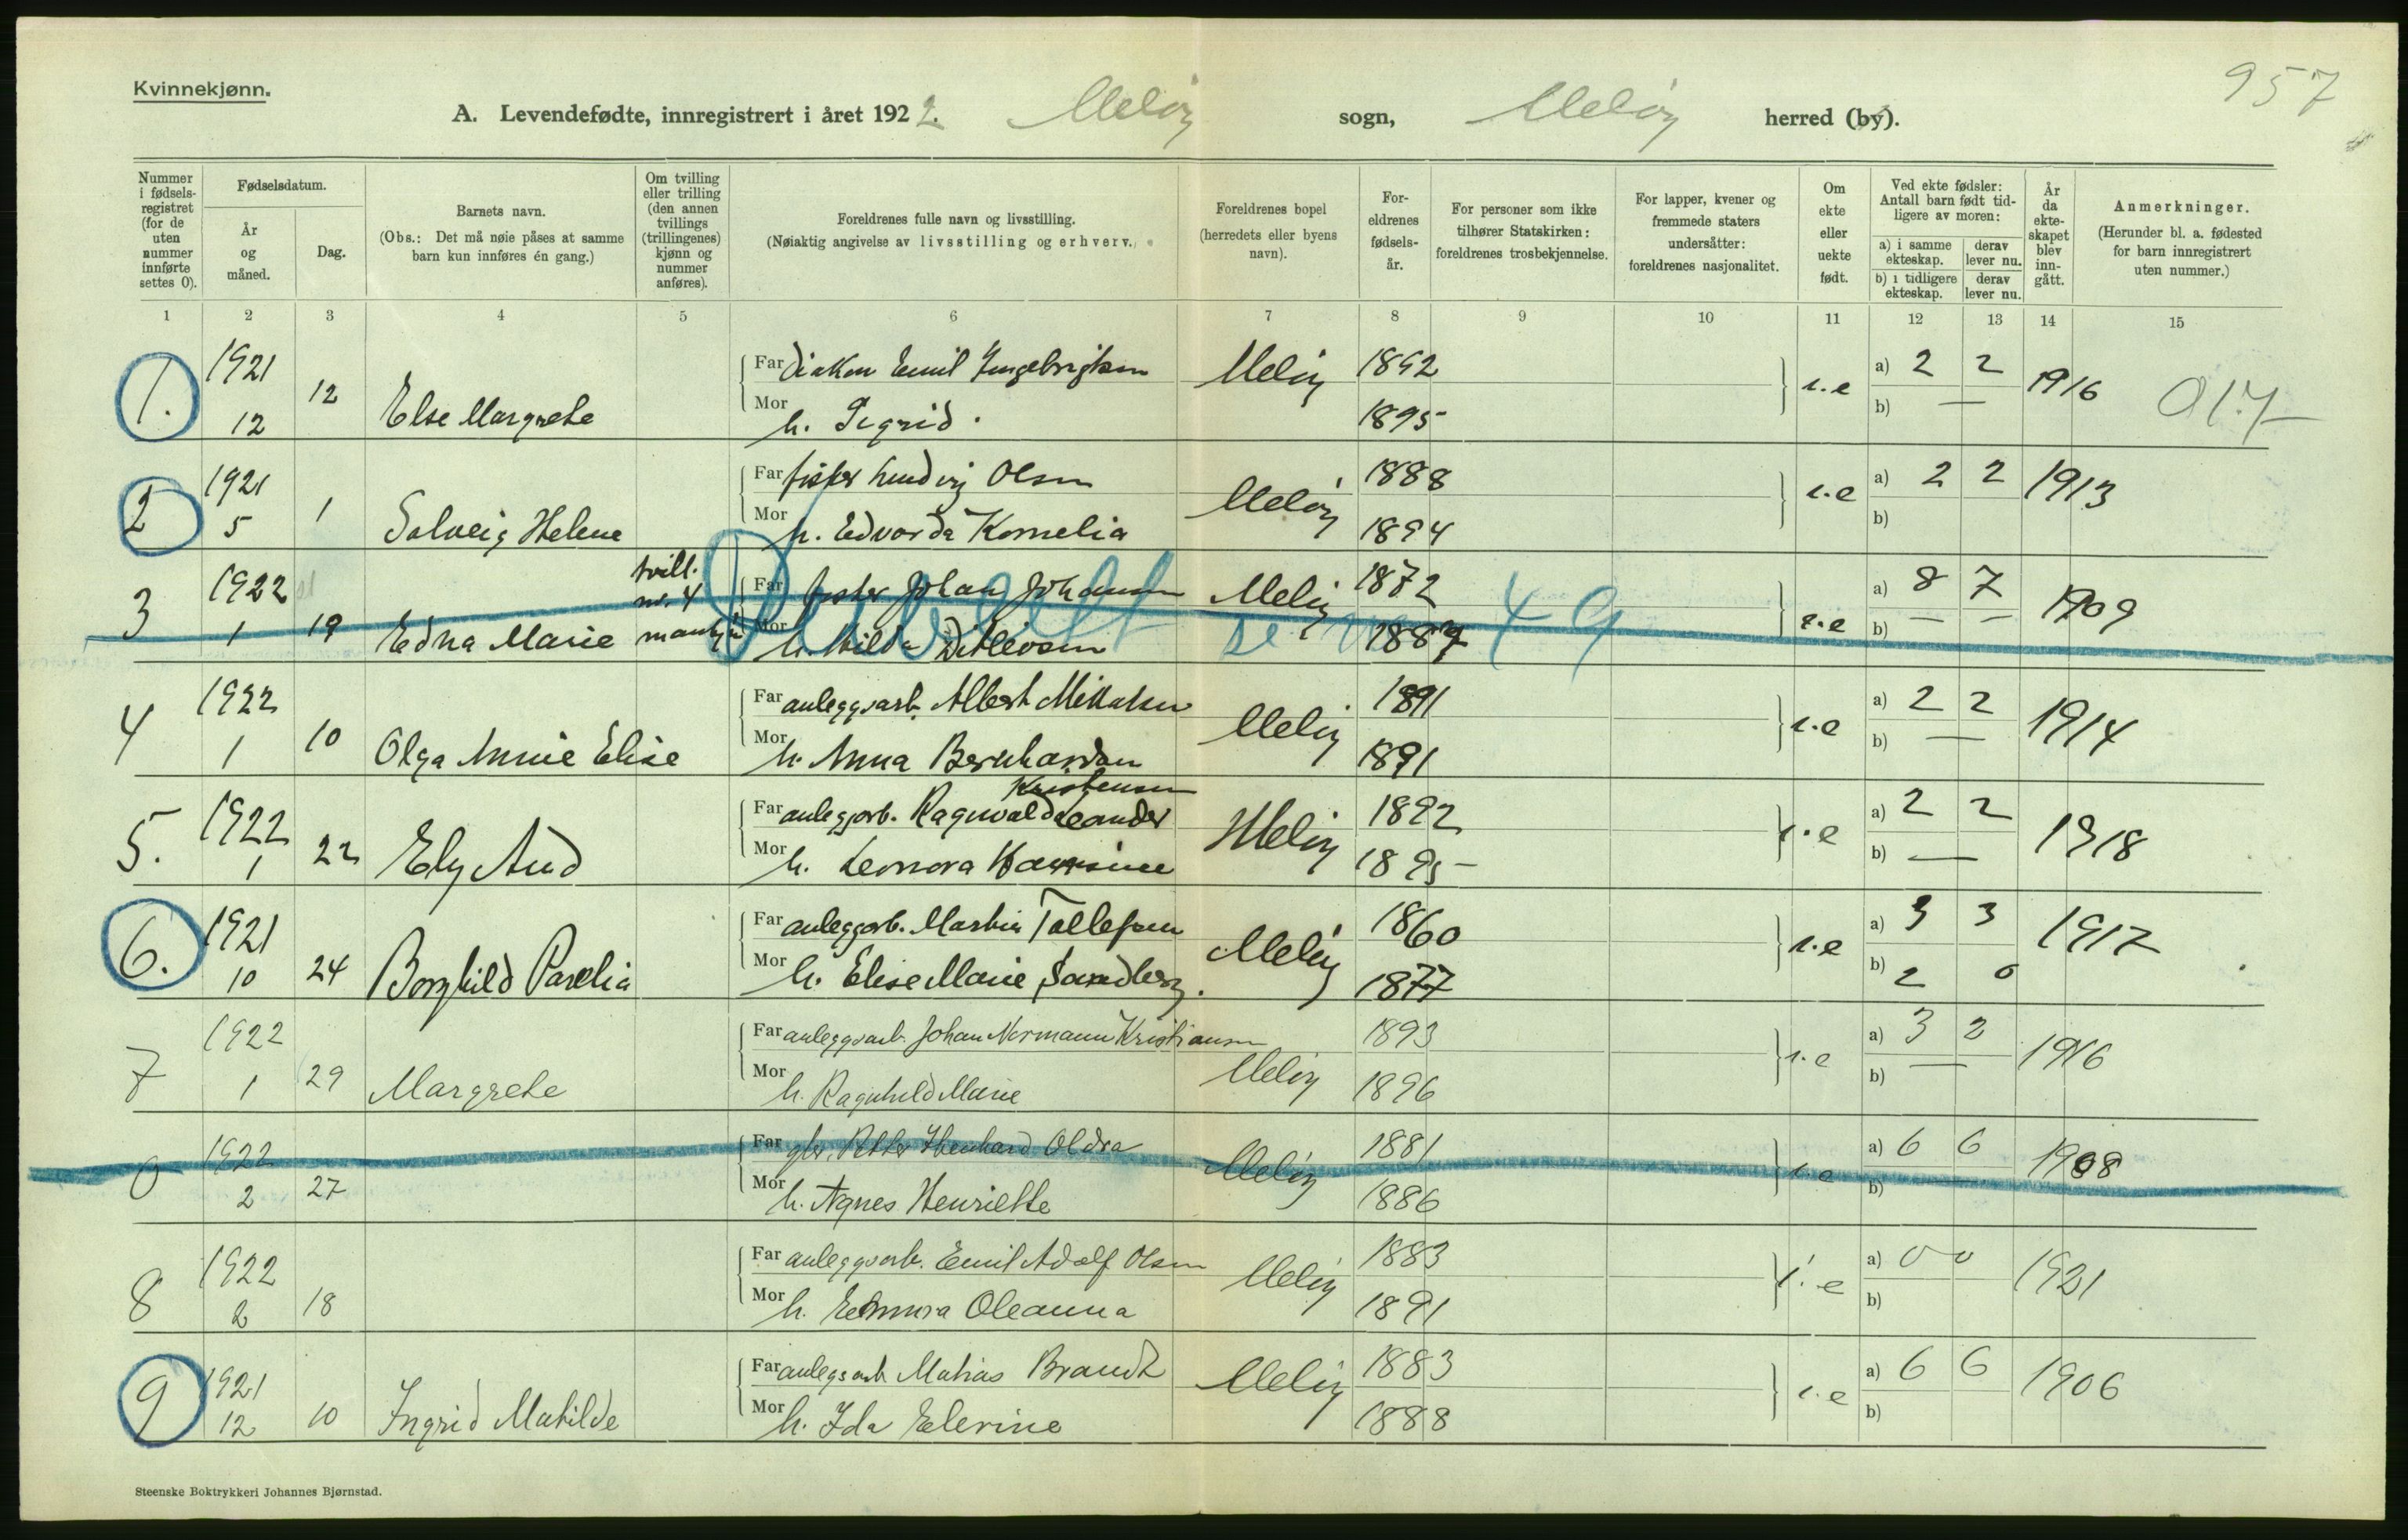 957
Kvinnekjønn.
A. Levendefødte, innregistrert i året 1922. Meløy sogn, Meløy herred (by).
Nummer i fødsels-registret (for de uten nummer innførte settes 0).
Fødselsdatum.
År og måned.
Dag.
Barnets navn.
(Obs.: Det må nøie påses at samme barn kun innføres én gang.)
Om tvilling eller trilling (den annen tvillings (trillingenes) kjønn og nummer anføres).
Foreldrenes fulle navn og livsstilling.
(Nøiaktig angivelse av livsstilling og erhverv.)
Foreldrenes bopel (herredets eller byens navn).
For-eldrenes fødsels-år.
For personer som ikke tilhører Statskirken: foreldrenes trosbekjennelse.
For lapper, kvener og fremmede staters undersåtter: foreldrenes nasjonalitet.
Om ekte eller uekte født.
Ved ekte fødsler: Antall barn født tid-ligere av moren:
a) i samme ekteskap. derav lever nu.
b) i tidligere ekteskap. derav lever nu.
År da ekte-skapet blev inn-gått.
Anmerkninger.
(Herunder bl. a. fødested for barn innregistrert uten nummer.)
1 2 3 4 5 6 7 8 9 10 11 12 13 14 15
1. 1921 12 12 Else Margrete
Far diakon Emil Ingebrigtsen Meløy 1892 i.e a) 2 2 1916 017
Mor h. Sigrid. 1895 b) —
2 1921 5 1 Solveig Helene
Far fisker Ludvig Olsen Meløy 1888 i.e a) 2 2 1913
Mor h. Edvarda Kornelia 1894 b)
3 1922 1 19 Edna Marie tvill. nr. 4 mankj.
Far fisker Johan Johansen Meløy 1872 i.e a) 8 7 1909
Mor h. Hilda Ditlevsen 1887 b) — —
se nr 49
4 1922 1 10 Olga Annie Elise
Far anleggsarb. Albert Mikalsen Meløy 1891 i.e a) 2 2 1914
Mor h. Anna Bernhardsen 1891 b) —
5. 1922 1 22 Ely Aud
Kristensen
Far anleggsarb. Ragnvald Leander Meløy 1892 i.e a) 2 2 1918
Mor h. Leonora 1895 b) —
6. 1921 10 24 Borghild Parelia
Far anleggsarb. Martin Tollefsen Meløy 1860 i.e a) 3 3 1917
Mor h. Elise Marie Sandberg. 1877 b) 2 0
7 1922 1 29 Margrete
Far anleggsarb. Johan Normann Kristiansen Meløy 1893 i.e a) 3 2 1916
Mor h. Ragnhild Marie 1896 b) —
0 1922 2 27
Far gbr. Petter Oldra Meløy 1881 i.e a) 6 6 1908
Mor h. Agnes Henriette 1886 b)
8 1922 2 18
Far anleggsarb. Emil Adolf Olsen Meløy 1883 i.e a) 0 0 1921
Mor h. Oleanna 1891 b)
9 1921 12 10 Ingrid Mathilde
Far anlegsarb Mathias Brandt Meløy 1883 i.e a) 6 6 1906
Mor h. Ida Elerine 1888 b)
Steenske Boktrykkeri Johannes Bjørnstad.